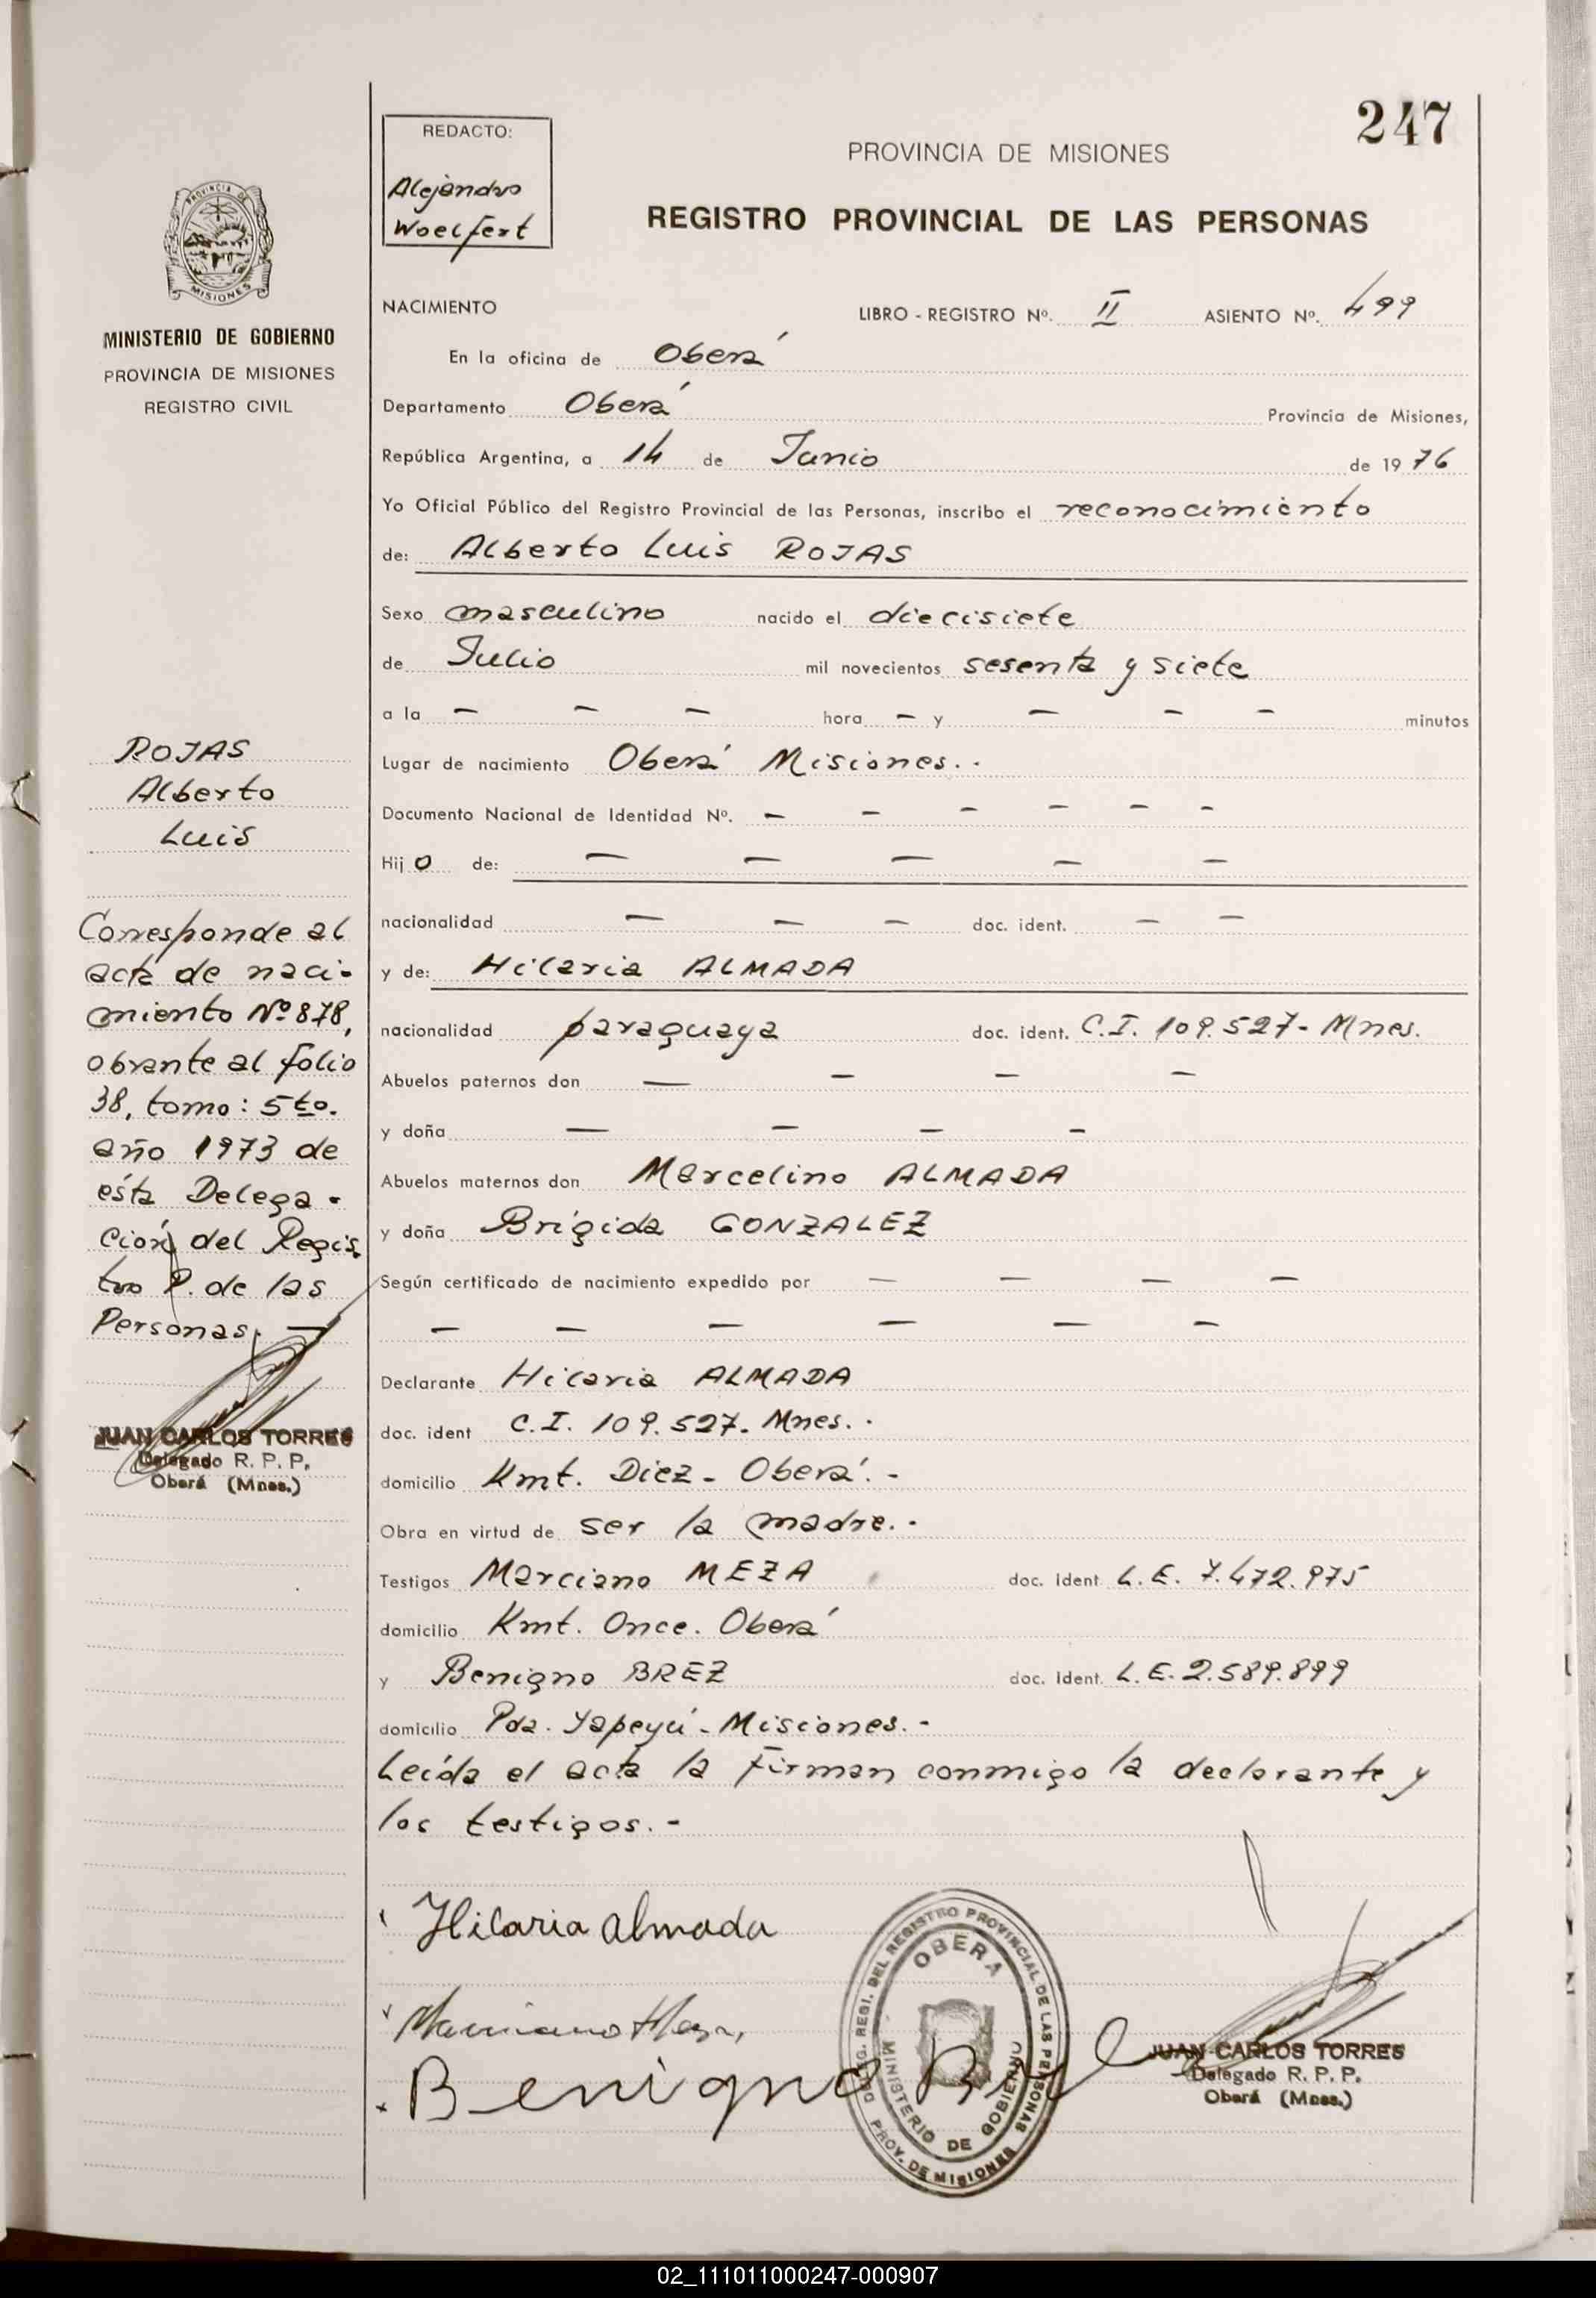 247
REDACTO:
Alejandro
Woelfert
PROVINCIA DE MISIONES
REGISTRO PROVINCIAL DE LAS PERSONAS
PROVINCIA DE
MISIONES
MINISTERIO DE GOBIERNO
PROVINCIA DE MISIONES
REGISTRO CIVIL
NACIMIENTO LIBRO - REGISTRO Nº. II ASIENTO Nº. 499
En la oficina de Oberá
Departamento Oberá Provincia de Misiones,
República Argentina, a 14 de Junio de 1976
Yo Oficial Público del Registro Provincial de las Personas, inscribo el reconocimiento
de: Alberto Luis ROJAS
Sexo masculino nacido el diecisiete
de Julio mil novecientos sesenta y siete
a la — — — hora — y — — — minutos
Lugar de nacimiento Oberá Misiones.-
Documento Nacional de Identidad Nº. — — — — — —
Hijo de: — — — — —
nacionalidad — — — doc. ident. — —
y de: Hilaria ALMADA
nacionalidad paraguaya doc. ident. C.I. 109.527- Mnes.
Abuelos paternos don — — — —
y doña — — — —
Abuelos maternos don Marcelino ALMADA
y doña Brígida GONZALEZ
Según certificado de nacimiento expedido por — — — —
— — — — — —
Declarante Hilaria ALMADA
doc. ident C.I. 109.527- Mnes.-
domicilio Kmt. Diez- Oberá.-
Obra en virtud de ser la madre.-
Testigos Marciano MEZA doc. ident L.E. 7.472.975
domicilio Kmt. Once. Oberá
y Benigno BREZ doc. ident. L.E. 2.589.899
domicilio Pda. Yapeyú - Misiones.-
Leída el acta la firman conmigo la declarante y
los testigos.-
ROJAS
Alberto
Luis
Corresponde al
acta de naci-
miento Nº 878,
obrante al folio
38, tomo: 5to.
año 1973 de
ésta Delega-
ción del Regis
tro P. de las
Personas.—
JUAN CARLOS TORRES
Delegado R. P. P.
Oberá (Mnes.)
Hilaria Almada
Marciano Meza
Benigno
DELEG. REGI. DEL REGISTRO PROVINCIAL DE LAS PERSONAS
OBERA
MINISTERIO DE GOBIERNO
PROV. DE MISIONES
JUAN CARLOS TORRES
Delegado R. P. P.
Oberá (Mnes.)
02_111011000247-000907